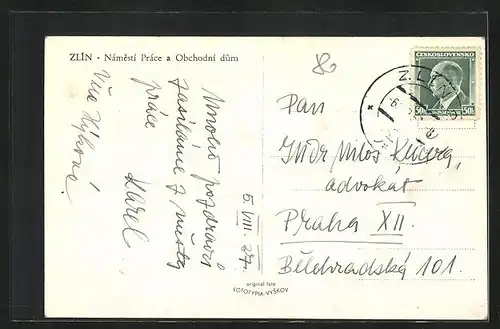 ZLÍN • Náměstí Práce a Obchodní dům
Mnoho pozdravů
zasíláme z města
práce
Karel
5. VIII. 37.
original foto
FOTOTYPIA-VYŠKOV
ČESKOSLOVENSKO
50h 50h
ZLÍN
Pan
JUDr Miloš
advokát
Praha XII.
Bělehradská 101.